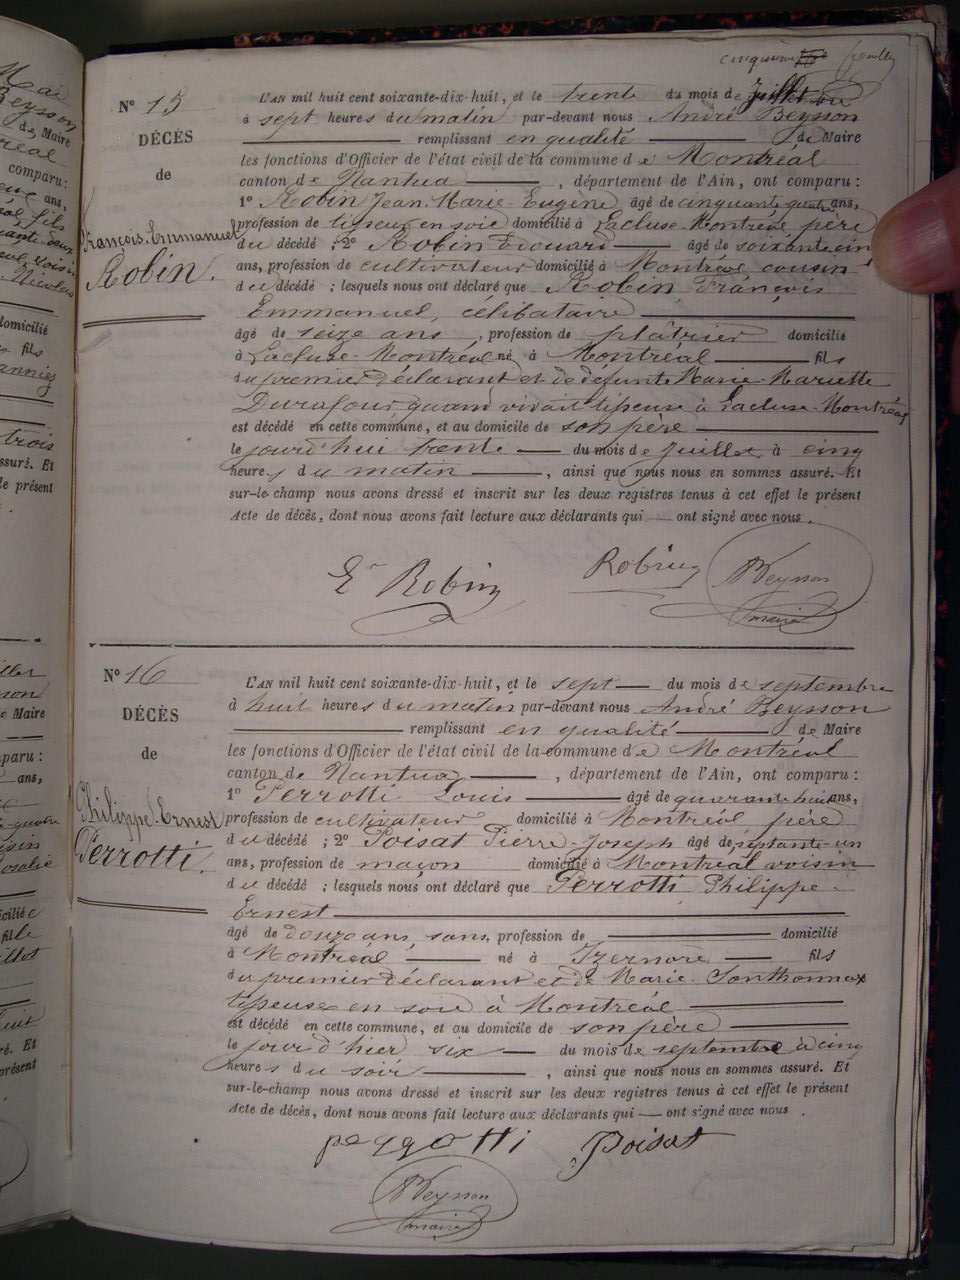 cinquième feuillet
N° 15
DÉCÈS
de
François-Emmanuel
Robin.
L'AN mil huit cent soixante-dix-huit, et le trente du mois de juillet
à sept heures du matin par-devant nous André Beysson
remplissant en qualité de Maire
les fonctions d'Officier de l'état civil de la commune de Montréal
canton de Nantua, département de l'Ain, ont comparu :
1° Robin Jean-Marie-Eugène âgé de cinquante quatre ans,
profession de tisseur en soie domicilié à Lacluse-Montréal, père
du décédé ; 2° Robin Edouard âgé de soixante cinq
ans, profession de cultivateur domicilié à Montréal, cousin
du décédé ; lesquels nous ont déclaré que Robin François
Emmanuel, célibataire
âgé de seize ans, profession de plâtrier domicilié
à Lacluse-Montréal né à Montréal fils
du premier déclarant et de défunte Marie-Mariette
Durafour quand vivait tisseuse à Lacluse-Montréal
est décédé en cette commune, et au domicile de son père
le jourd'hui trente du mois de juillet à cinq
heures du matin, ainsi que nous nous en sommes assuré. Et
sur-le-champ nous avons dressé et inscrit sur les deux registres tenus à cet effet le présent
Acte de décès, dont nous avons fait lecture aux déclarants qui — ont signé avec nous.
Er Robin Robin Beysson
maire
N° 16
DÉCÈS
de
Philippe-Ernest
Perrotti.
L'AN mil huit cent soixante-dix-huit, et le sept du mois de septembre
à huit heures du matin par-devant nous André Beysson
remplissant en qualité de Maire
les fonctions d'Officier de l'état civil de la commune de Montréal
canton de Nantua, département de l'Ain, ont comparu :
1° Perrotti Louis âgé de quarante huit ans,
profession de cultivateur domicilié à Montréal père
du décédé ; 2° Poisat Pierre-Joseph âgé de septante-un
ans, profession de maçon domicilié à Montréal voisin
du décédé ; lesquels nous ont déclaré que Perrotti Philippe-
Ernest
âgé de douze ans, sans profession de domicilié
à Montréal né à Izernore fils
du premier déclarant et de Marie-Sonthonnax
tisseuse en soie à Montréal
est décédé en cette commune, et au domicile de son père
le jour d'hier six du mois de septembre à cinq
heures du soir, ainsi que nous nous en sommes assuré. Et
sur-le-champ nous avons dressé et inscrit sur les deux registres tenus à cet effet le présent
Acte de décès, dont nous avons fait lecture aux déclarants qui — ont signé avec nous.
perrotti Poisat
Beysson
maire